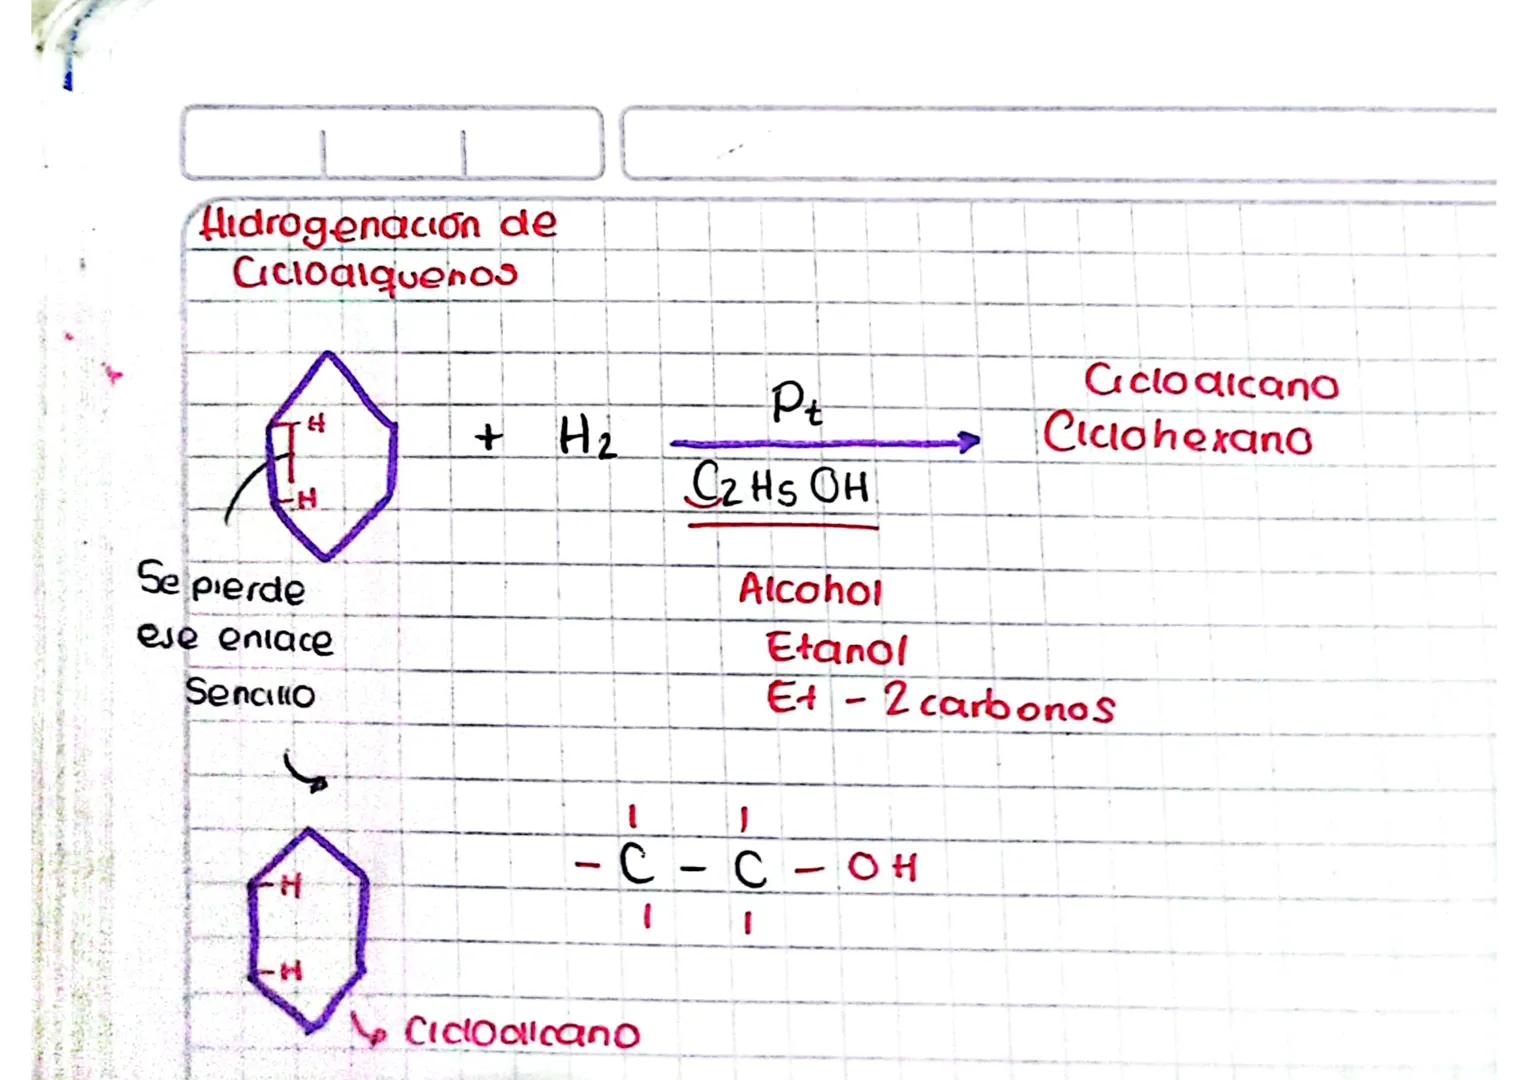 Hidrogenación de
Cicloalquenos
H
H
+ H2
Pt
C2H5OH
Cicloalcano
Ciclohexano
Se pierde
ese enlace
Sencillo
Alcohol
Etanol
Et - 2 carbonos
- C - C - OH
H
H
Cicloalcano